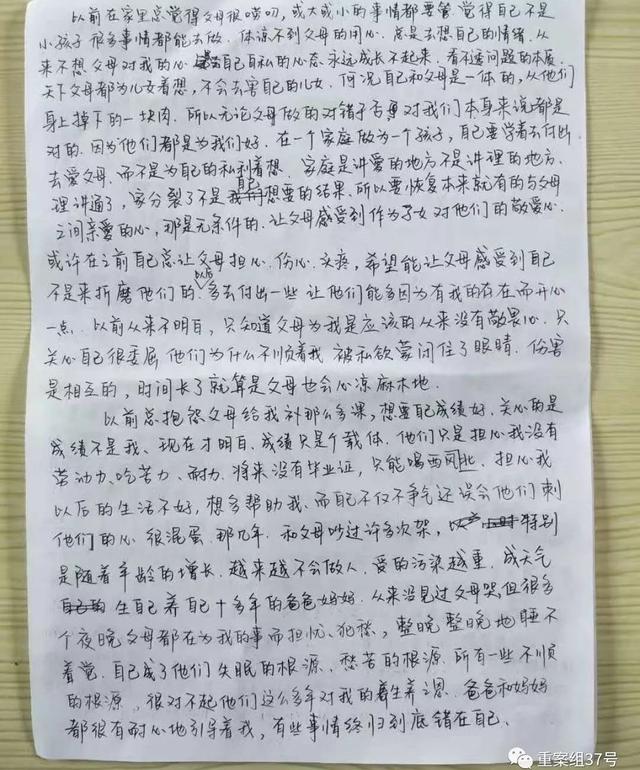 以前在家里总觉得父母很唠叨，或大或小的事情都要管. 觉得自己不是
小孩子很多事情都能去做. 体谅不到父母的用心. 总是去想自己的情绪. 从
来不想父母对我的心 自己自私的心态. 永远成长不起来. 看不透问题的本质.
天下父母都为儿女着想，不会去害自己的儿女. 何况自己和父母是一体的，从他们
身上掉下的一块肉. 所以无论父母做的对错于否 对我们本身来说都是
对的. 因为他们都是为我们好. 在一个家庭做为一个孩子，自己要学着去付出.
去爱父母. 而不是为自己的私利着想. 家庭是讲爱的地方不是讲理的地方.
理讲通了，家分裂了不是自己想要的结果. 所以要恢复本来就有的与父母
之间亲爱的心，那是无条件的. 让父母感受到作为子女对他们的敬爱心.
或许在之前自己总让父母担心. 伤心. 心疼，希望能让父母感受到自己
不是来折磨他们的. 以后多去付出一些 让他们能多因为有我的存在而开心
一点. 以前从来不明白，只知道父母为我是应该的从来没有敬畏心. 只
关心自己很委屈 他们为什么不顺着我. 被私欲蒙闭住了眼睛. 伤害
是相互的，时间长了就算是父母也会心凉麻木地.
以前总抱怨父母给我补那么多课，想要自己成绩好. 关心的是
成绩不是我. 现在才明白. 成绩只是个载体. 他们只是担心我没有
劳动力. 吃苦力. 耐力. 将来没有毕业证，只能喝西风北. 担心我
以后的生活不好，想多帮助我. 而自己不仅不争气还误会他们刺
他们的心. 很混蛋. 那几年. 和父母吵过许多次架， 特别
是随着年龄的增长. 越来越不会做人. 爱的污染越重. 成天气
生自己养自己十多年的爸爸妈妈. 从来没见过父母哭. 但很多
个夜晚父母都在为我的事而担忧、犯愁，整晚整晚地睡不
着觉. 自己成了他们失眠的根源. 愁苦的根源. 所有一些不顺
的根源. 很对不起他们这么多年对我的养生养之恩. 爸爸和妈妈
都很有耐心地引导着我，有些事情终归到底错在自己.
重案组37号